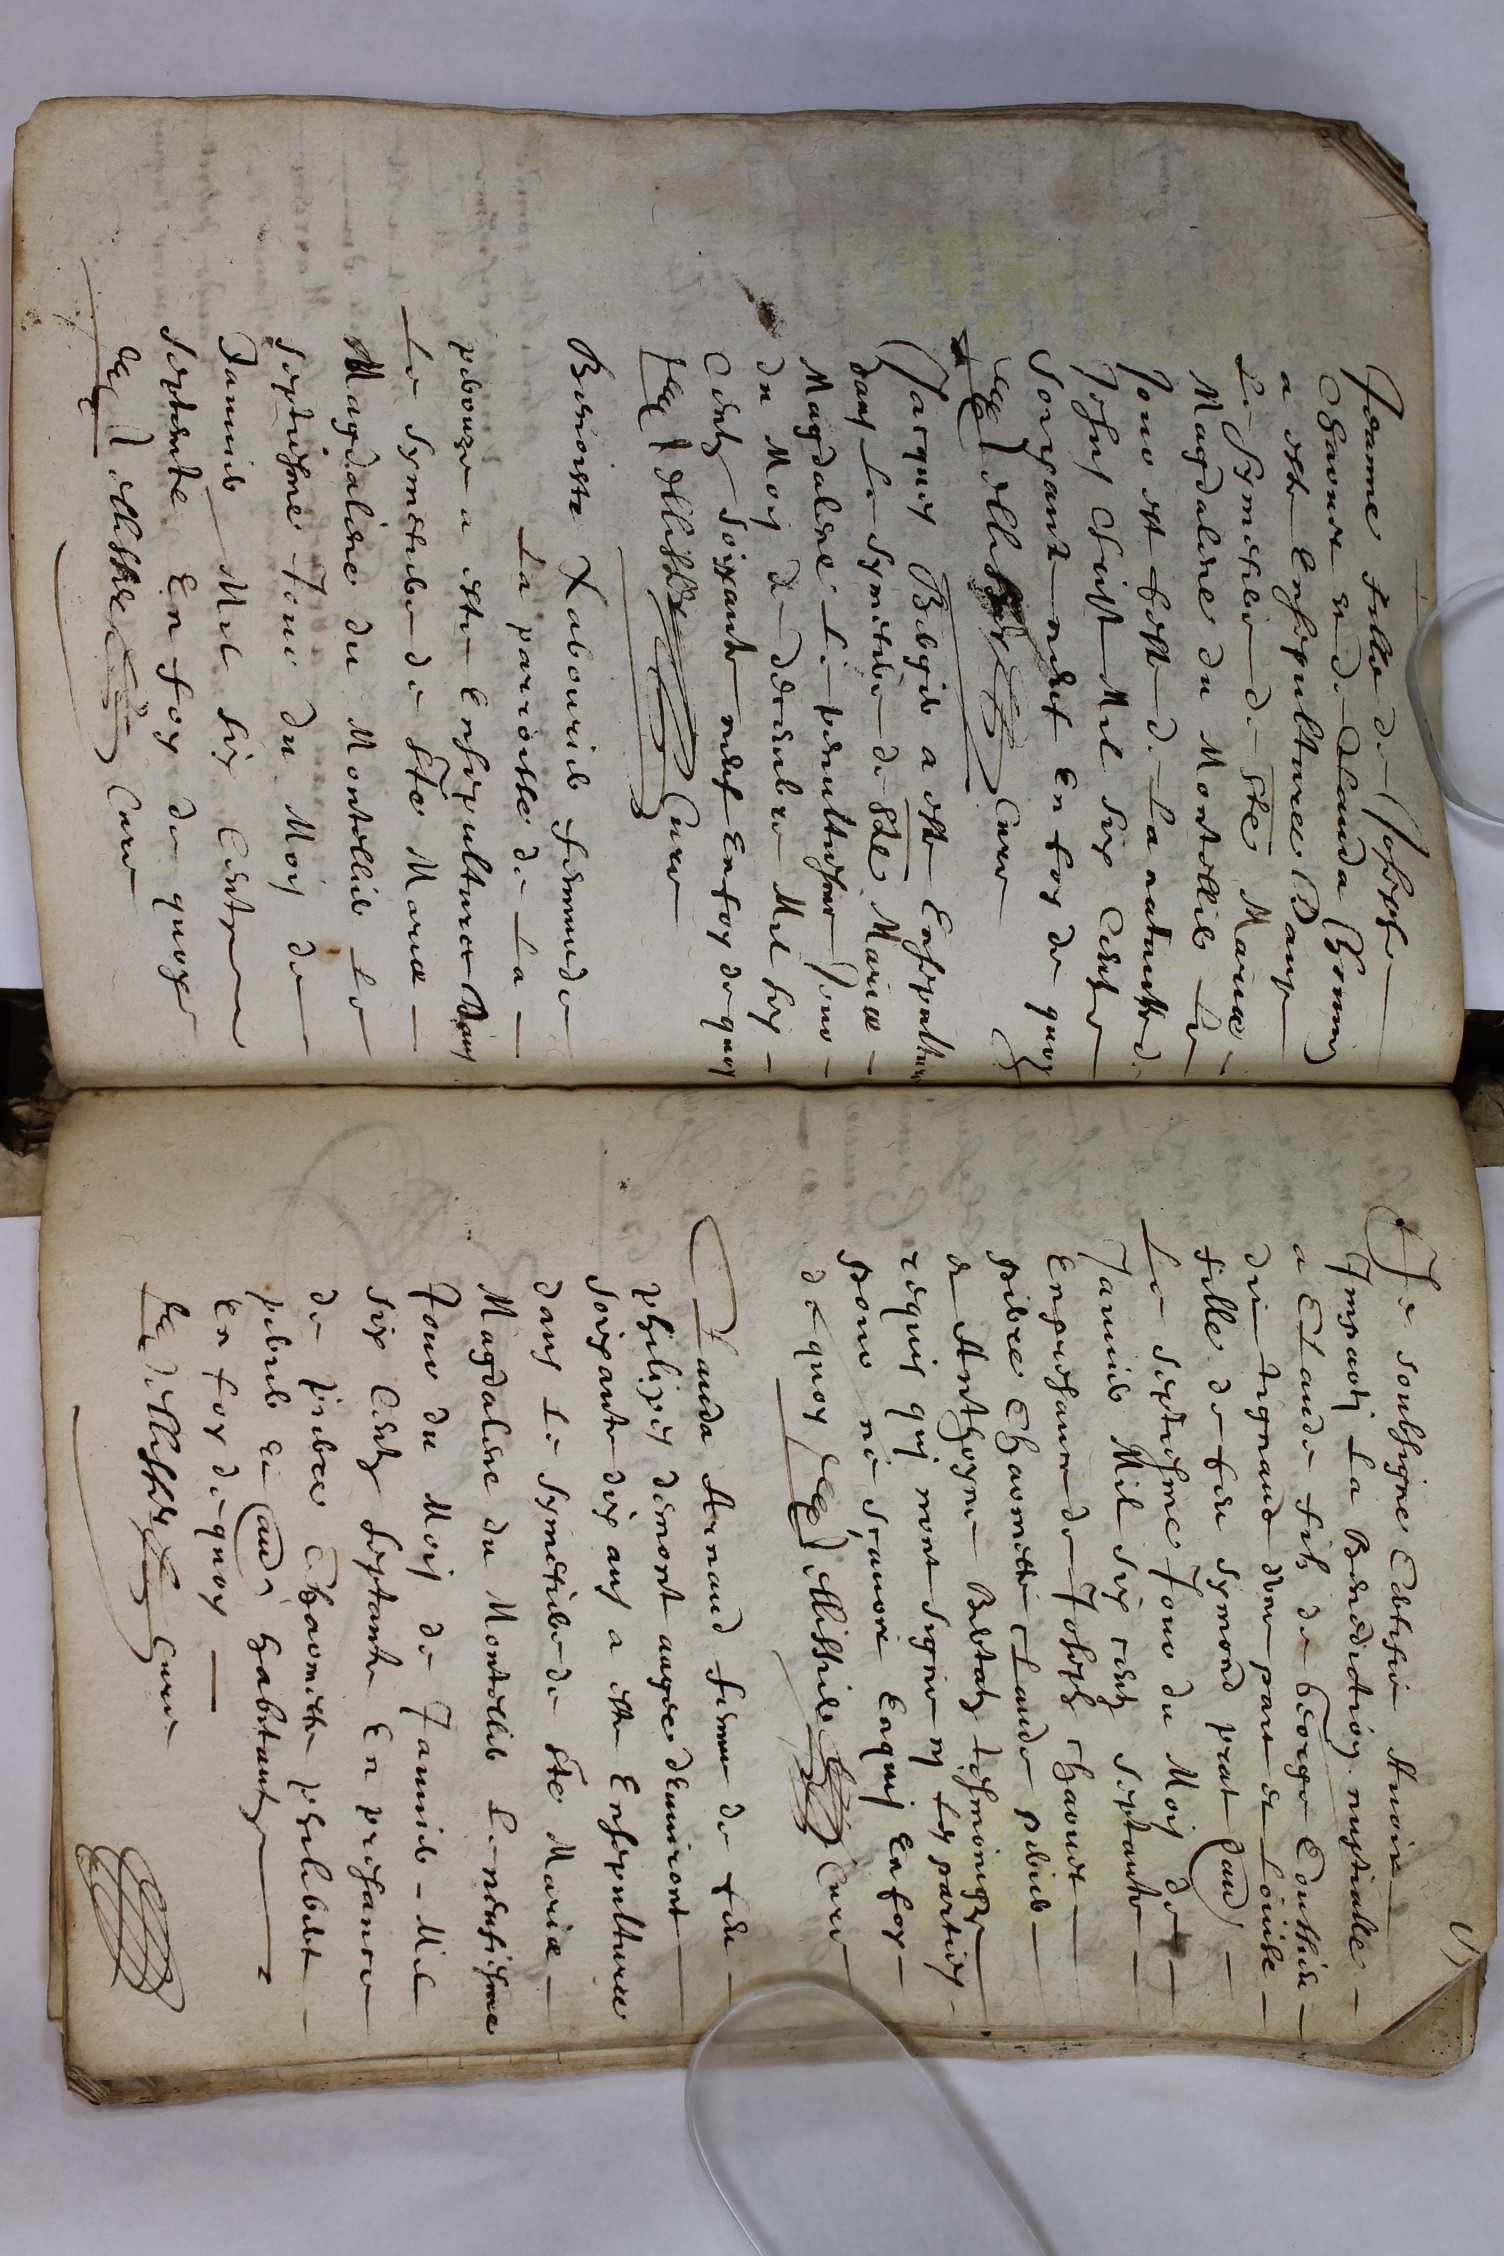 Jeanne fille de Joseph
Chavone et de Clauda Bonni
a este ensepulturee Dans
Le Symetiere de Ste Marie
Magdalene du Montellier Le
Jour et feste de La natiuitte de
Jesus Christ Mil six Cents
Soixante neuf En foy de quoy
Curé
Jacques Bergier a este Ensepulture
Dans Le Symetiere de Ste Marie
Magdalene Le penultiesme Jour
du Moy de decembre Mil six
Cents Soixante neuf En foy de quoy
Curé
Benoiste Labourier femme de
La parroisse de La
perouze a este Ensepulturee Dans
Le Symetiere de Ste Marie
Magdalene du Montellier Le
Septiesme Jour du Moy de
Januier Mil six Cents
Septente En foy de quoy
Curé
Je soubsigne Certifie Auoir
Imparty La Benediction nuptialle
a Claude fils de George Couttier
d'une part et Louise
fille de feu Symond prat d'au
Le septiesme Jour du Moy de
Januier Mil six cents septante
En presance de Joseph chavone
pierre Charmette Claude perrier
et Anthoyne Bertet tesmoings
requis qui n'ont signe ny les parties
pour ne sçauoir Enquis En foy
de quoy
Curé
Clauda Arnaud femme de feu
philipes dumont aagee d'enuiront
Soixante dix ans a este Ensepulturee
dans Le Symetiere de Ste Marie
Magdalene du Montellier Le neufiesme
Jour du Moy de Januier Mil
six Cents septante En presance
de pierre Charmette philibert
perrier et Claude habitants
En foy de quoy
Curé